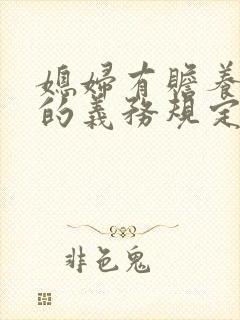 媳婦有贍養
的義務規定
非色鬼